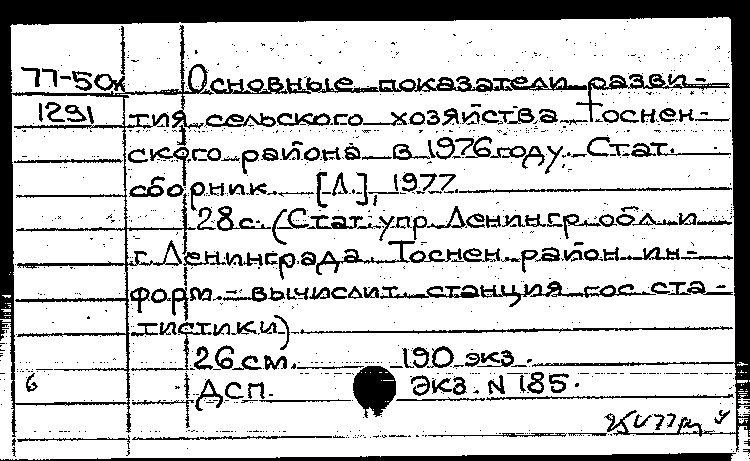 77-50ж Основные показатели разви-
1291 тия сельского хозяйства Тоснен-
ского района в 1976 году. Стат.
сборник. [Л.], 1977.
28с. (Стат. упр. Ленингр. обл. и
г. Ленинграда. Тоснен. район. ин-
форм.-вычислит. станция гос. ста-
тистики).
26 см. 190 экз.
6 ДСП. Экз. N 185.